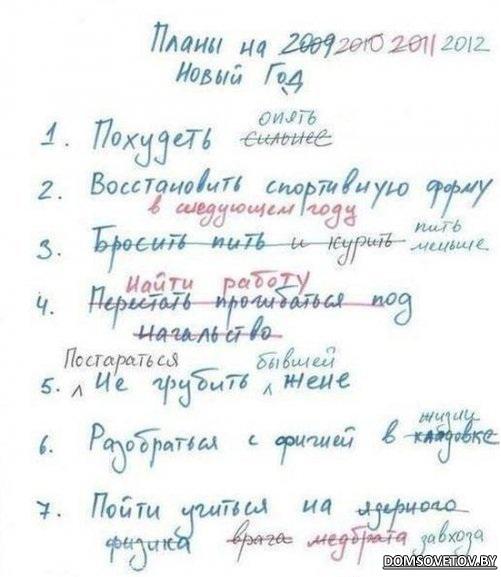 Планы на 2009 2010 2011 2012
Новый Год
опять
1. Похудеть сильнее
2. Восстановить спортивную форму
в следующем году
пить
3. Бросить пить и курить меньше
Найти работу
4. Перестать прогибаться под
начальство
Постараться бывшей
5. Не грубить жене
жизни
6. Разобраться с фигнёй в кладовке
7. Пойти учиться на ядерного
физика врача медбрата завхоза
DOMSOVETOV.BY